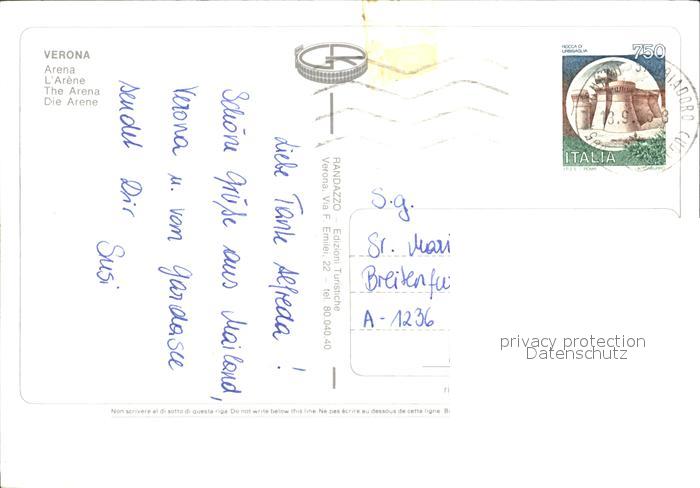 VERONA
Arena
L'Arène
The Arena
Die Arene
Liebe Tante Alfreda!
Schöne Grüße aus Mailand,
Verona u. vom Gardasee
sendet Dir
Susi
GR
RANDAZZO - Edizioni Turistiche
Verona, Via F. Emilei, 22 - tel. 80.040.40
ROCCA DI
URBISAGLIA
750
ITALIA
S.g.
Sr. Mari
Breitenfu
A-1236
privacy protection
Datenschutz
Non scrivere al di sotto di questa riga. Do not write below this line. Ne pas écrire au dessous de cette ligne.